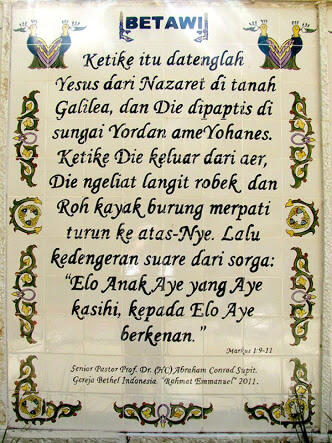 BETAWI
Ketike itu datenglah
Yesus dari Nazaret di tanah
Galilea, dan Die dipaptis di
sungai Yordan ameYohanes.
Ketike Die keluar dari aer,
Die ngeliat langit robek dan
Roh kayak burung merpati
turun ke atas-Nye. Lalu
kedengeran suare dari sorga:
“Elo Anak Aye yang Aye
kasihi, kepada Elo Aye
berkenan.”
Markus 1:9-11
Senior Pastor Prof. Dr. (HC) Abraham Conrad Supit.
Gereja Bethel Indonesia "Rahmat Emmanuel" 2011.